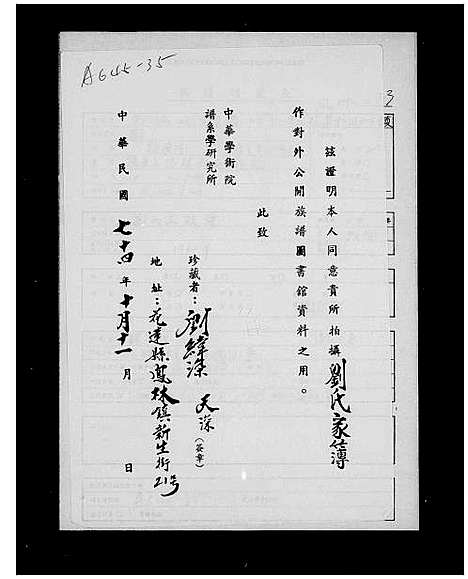 A645-35
茲證明本人同意貴所拍攝劉氏家簿
作對外公開族譜圖書館資料之用。
此致
中華學術院
譜系學研究所
珍藏者：劉緯深 天深（簽章）
地址：花蓮縣鳳林鎮新生街21号
中華民國七十四年十月十一月 日